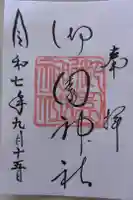 奉拝
御園神社
令和七年九月十五日